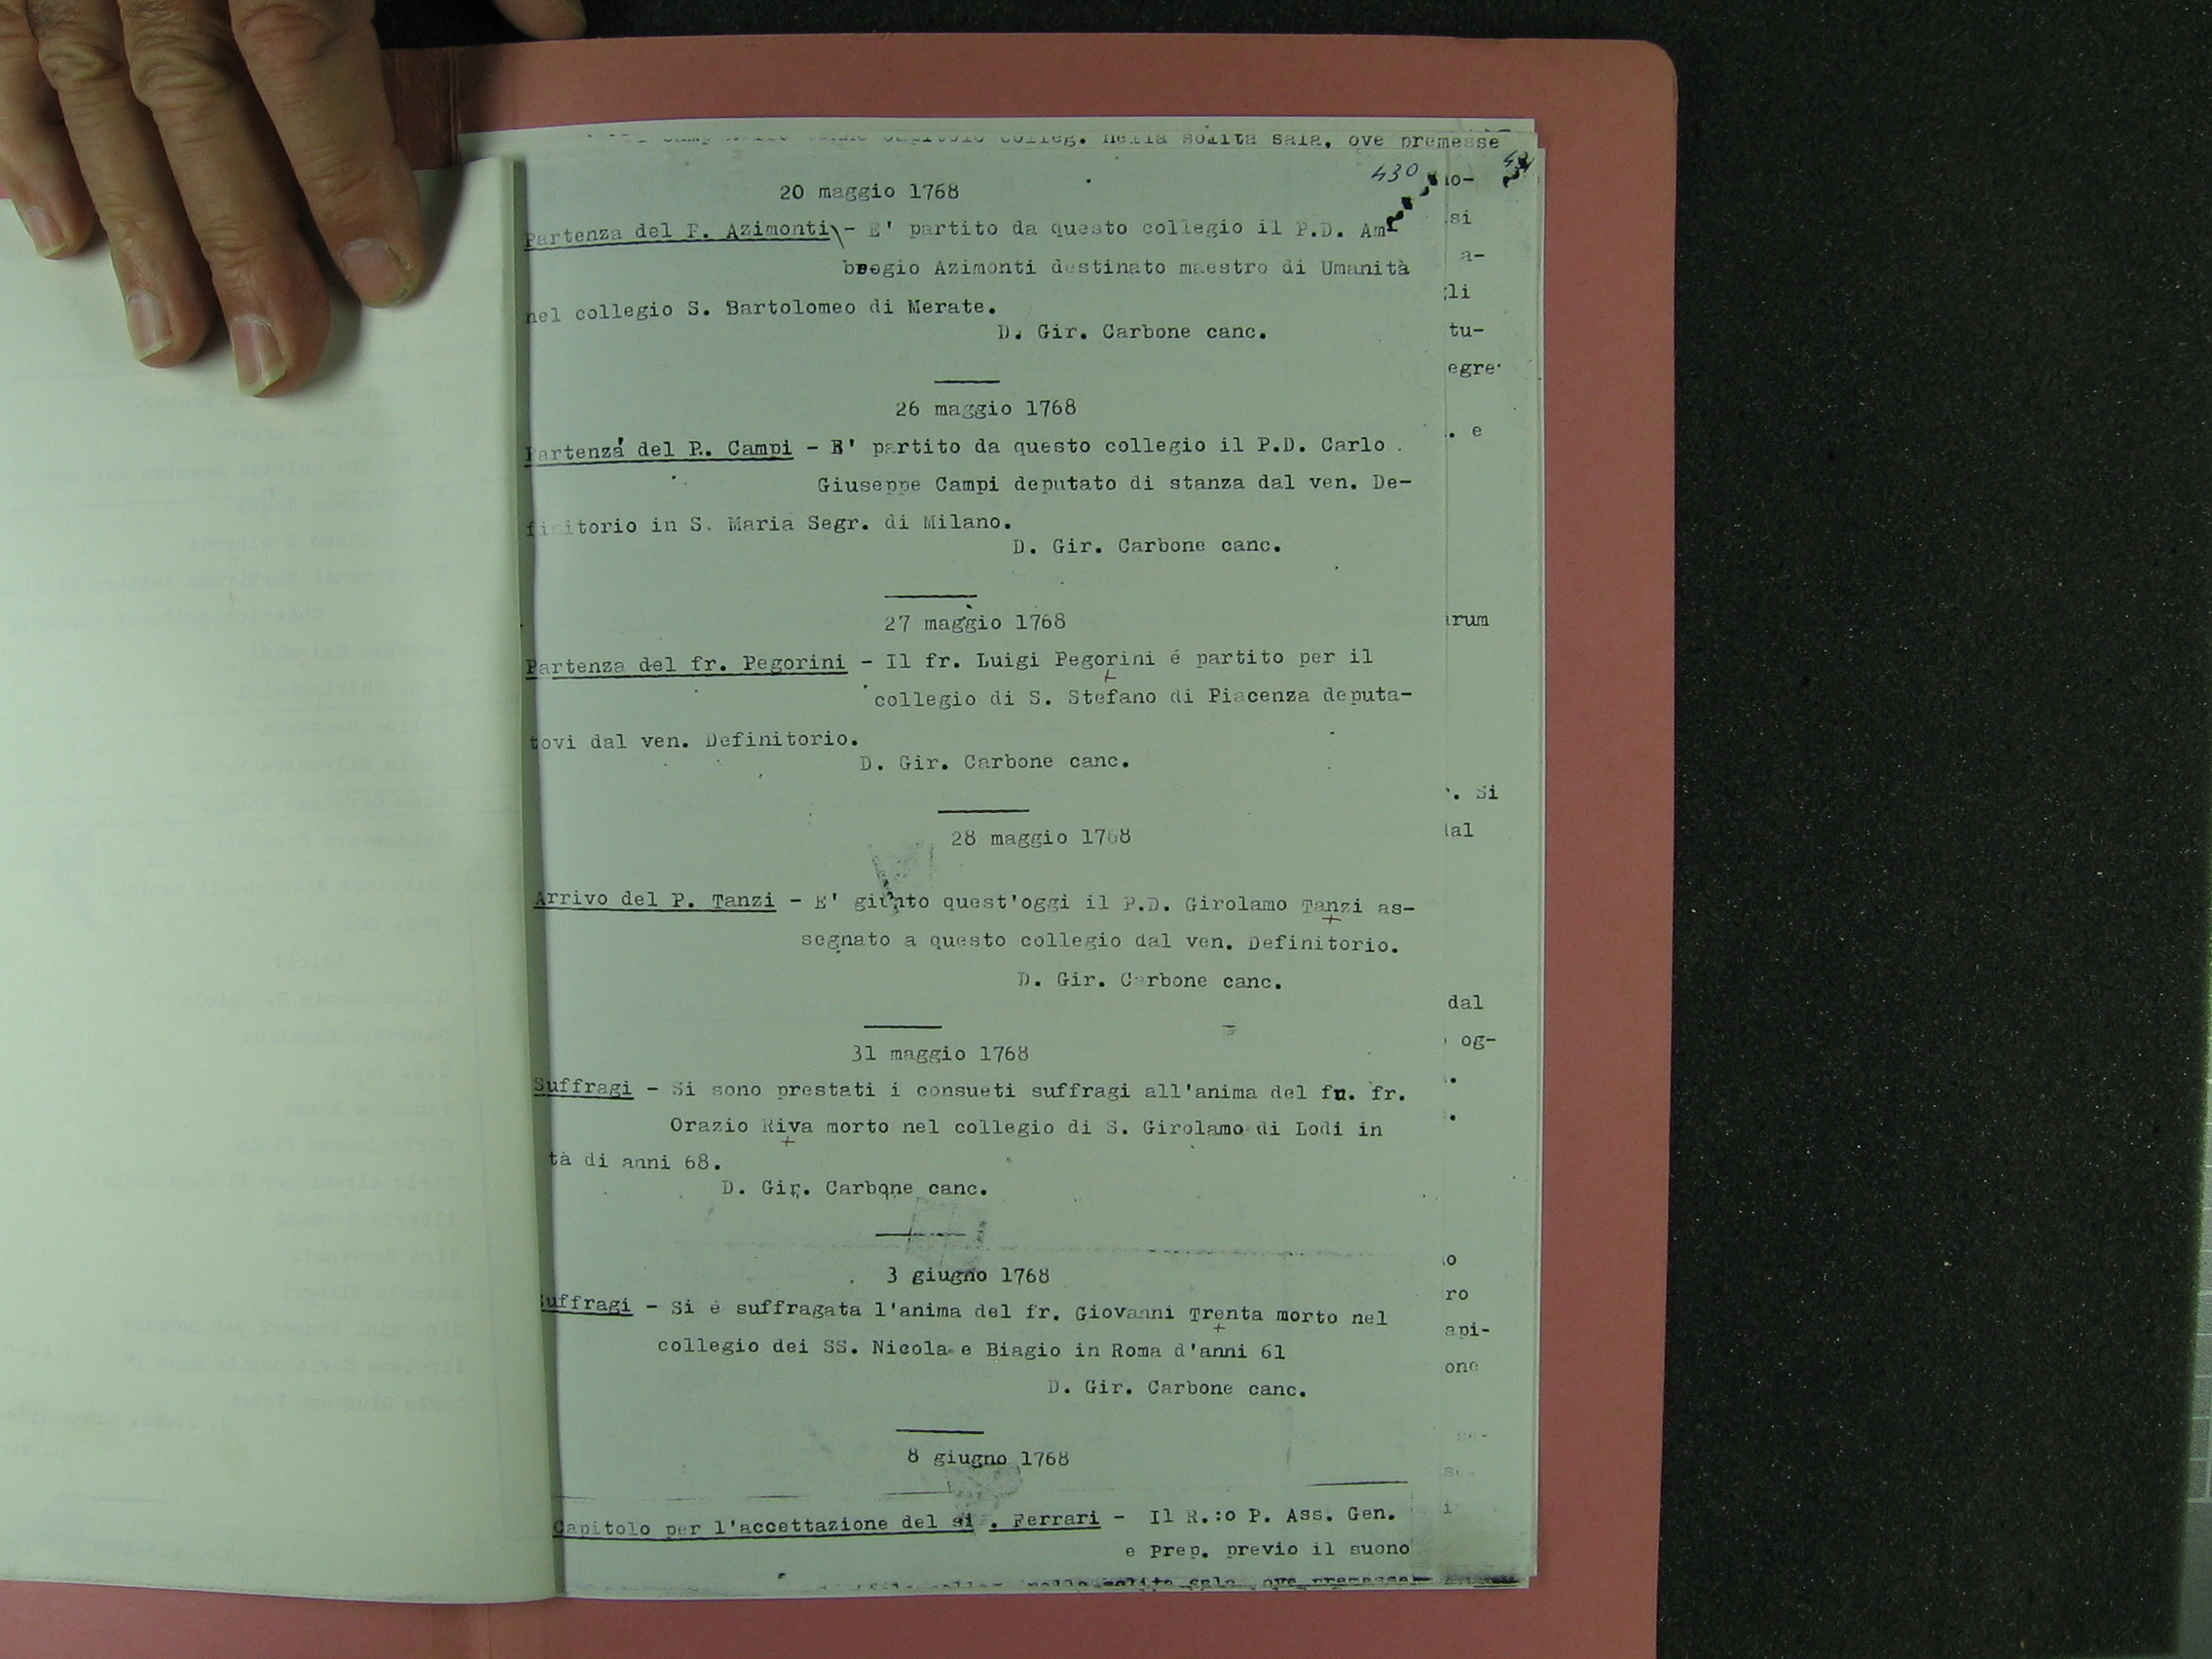 colleg. nella solita sala, ove premesse
430
20 maggio 1768
Partenza del P. Azimonti - E' partito da questo collegio il P.D. Am
brogio Azimonti destinato maestro di Umanità
nel collegio S. Bartolomeo di Merate.
D. Gir. Carbone canc.
26 maggio 1768
Partenza del P. Campi - E' partito da questo collegio il P.D. Carlo
Giuseppe Campi deputato di stanza dal ven. De-
finitorio in S. Maria Segr. di Milano.
D. Gir. Carbone canc.
27 maggio 1768
Partenza del fr. Pegorini - Il fr. Luigi Pegorini é partito per il
collegio di S. Stefano di Piacenza deputa-
tovi dal ven. Definitorio.
D. Gir. Carbone canc.
28 maggio 1768
Arrivo del P. Tanzi - E' giunto quest'oggi il P.D. Girolamo Tanzi as-
segnato a questo collegio dal ven. Definitorio.
D. Gir. Carbone canc.
31 maggio 1768
Suffragi - Si sono prestati i consueti suffragi all'anima del fu. fr.
Orazio Riva morto nel collegio di S. Girolamo di Lodi in
tà di anni 68.
D. Gir. Carbone canc.
3 giugno 1768
Suffragi - Si é suffragata l'anima del fr. Giovanni Trenta morto nel
collegio dei SS. Nicola e Biagio in Roma d'anni 61
D. Gir. Carbone canc.
8 giugno 1768
Capitolo per l'accettazione del . Ferrari - Il R.:o P. Ass. Gen.
e Prep. previo il suono
solita sala, ove premesse